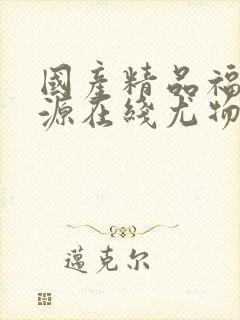 國產精品福
源在綫尤物
邁克尔